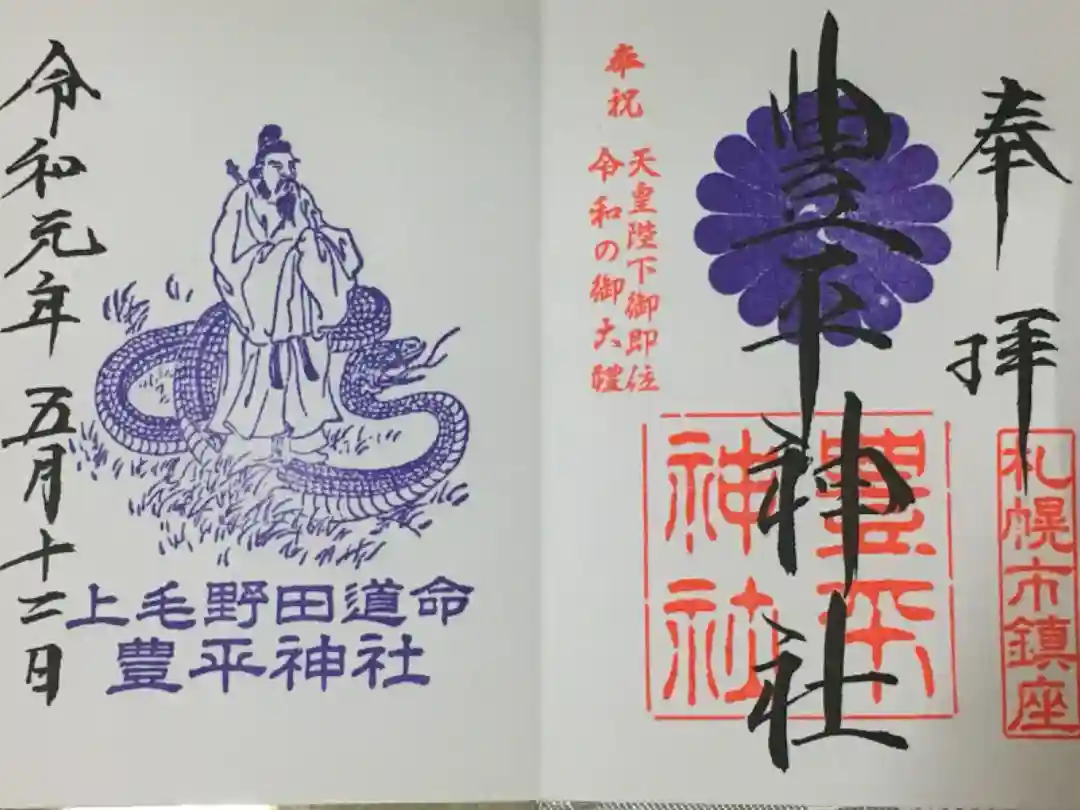 奉拝
札幌市鎮座
豊平神社
豊平
神社
奉祝
天皇陛下御即位
令和の御大禮
上毛野田道命
豊平神社
令和元年五月十二日